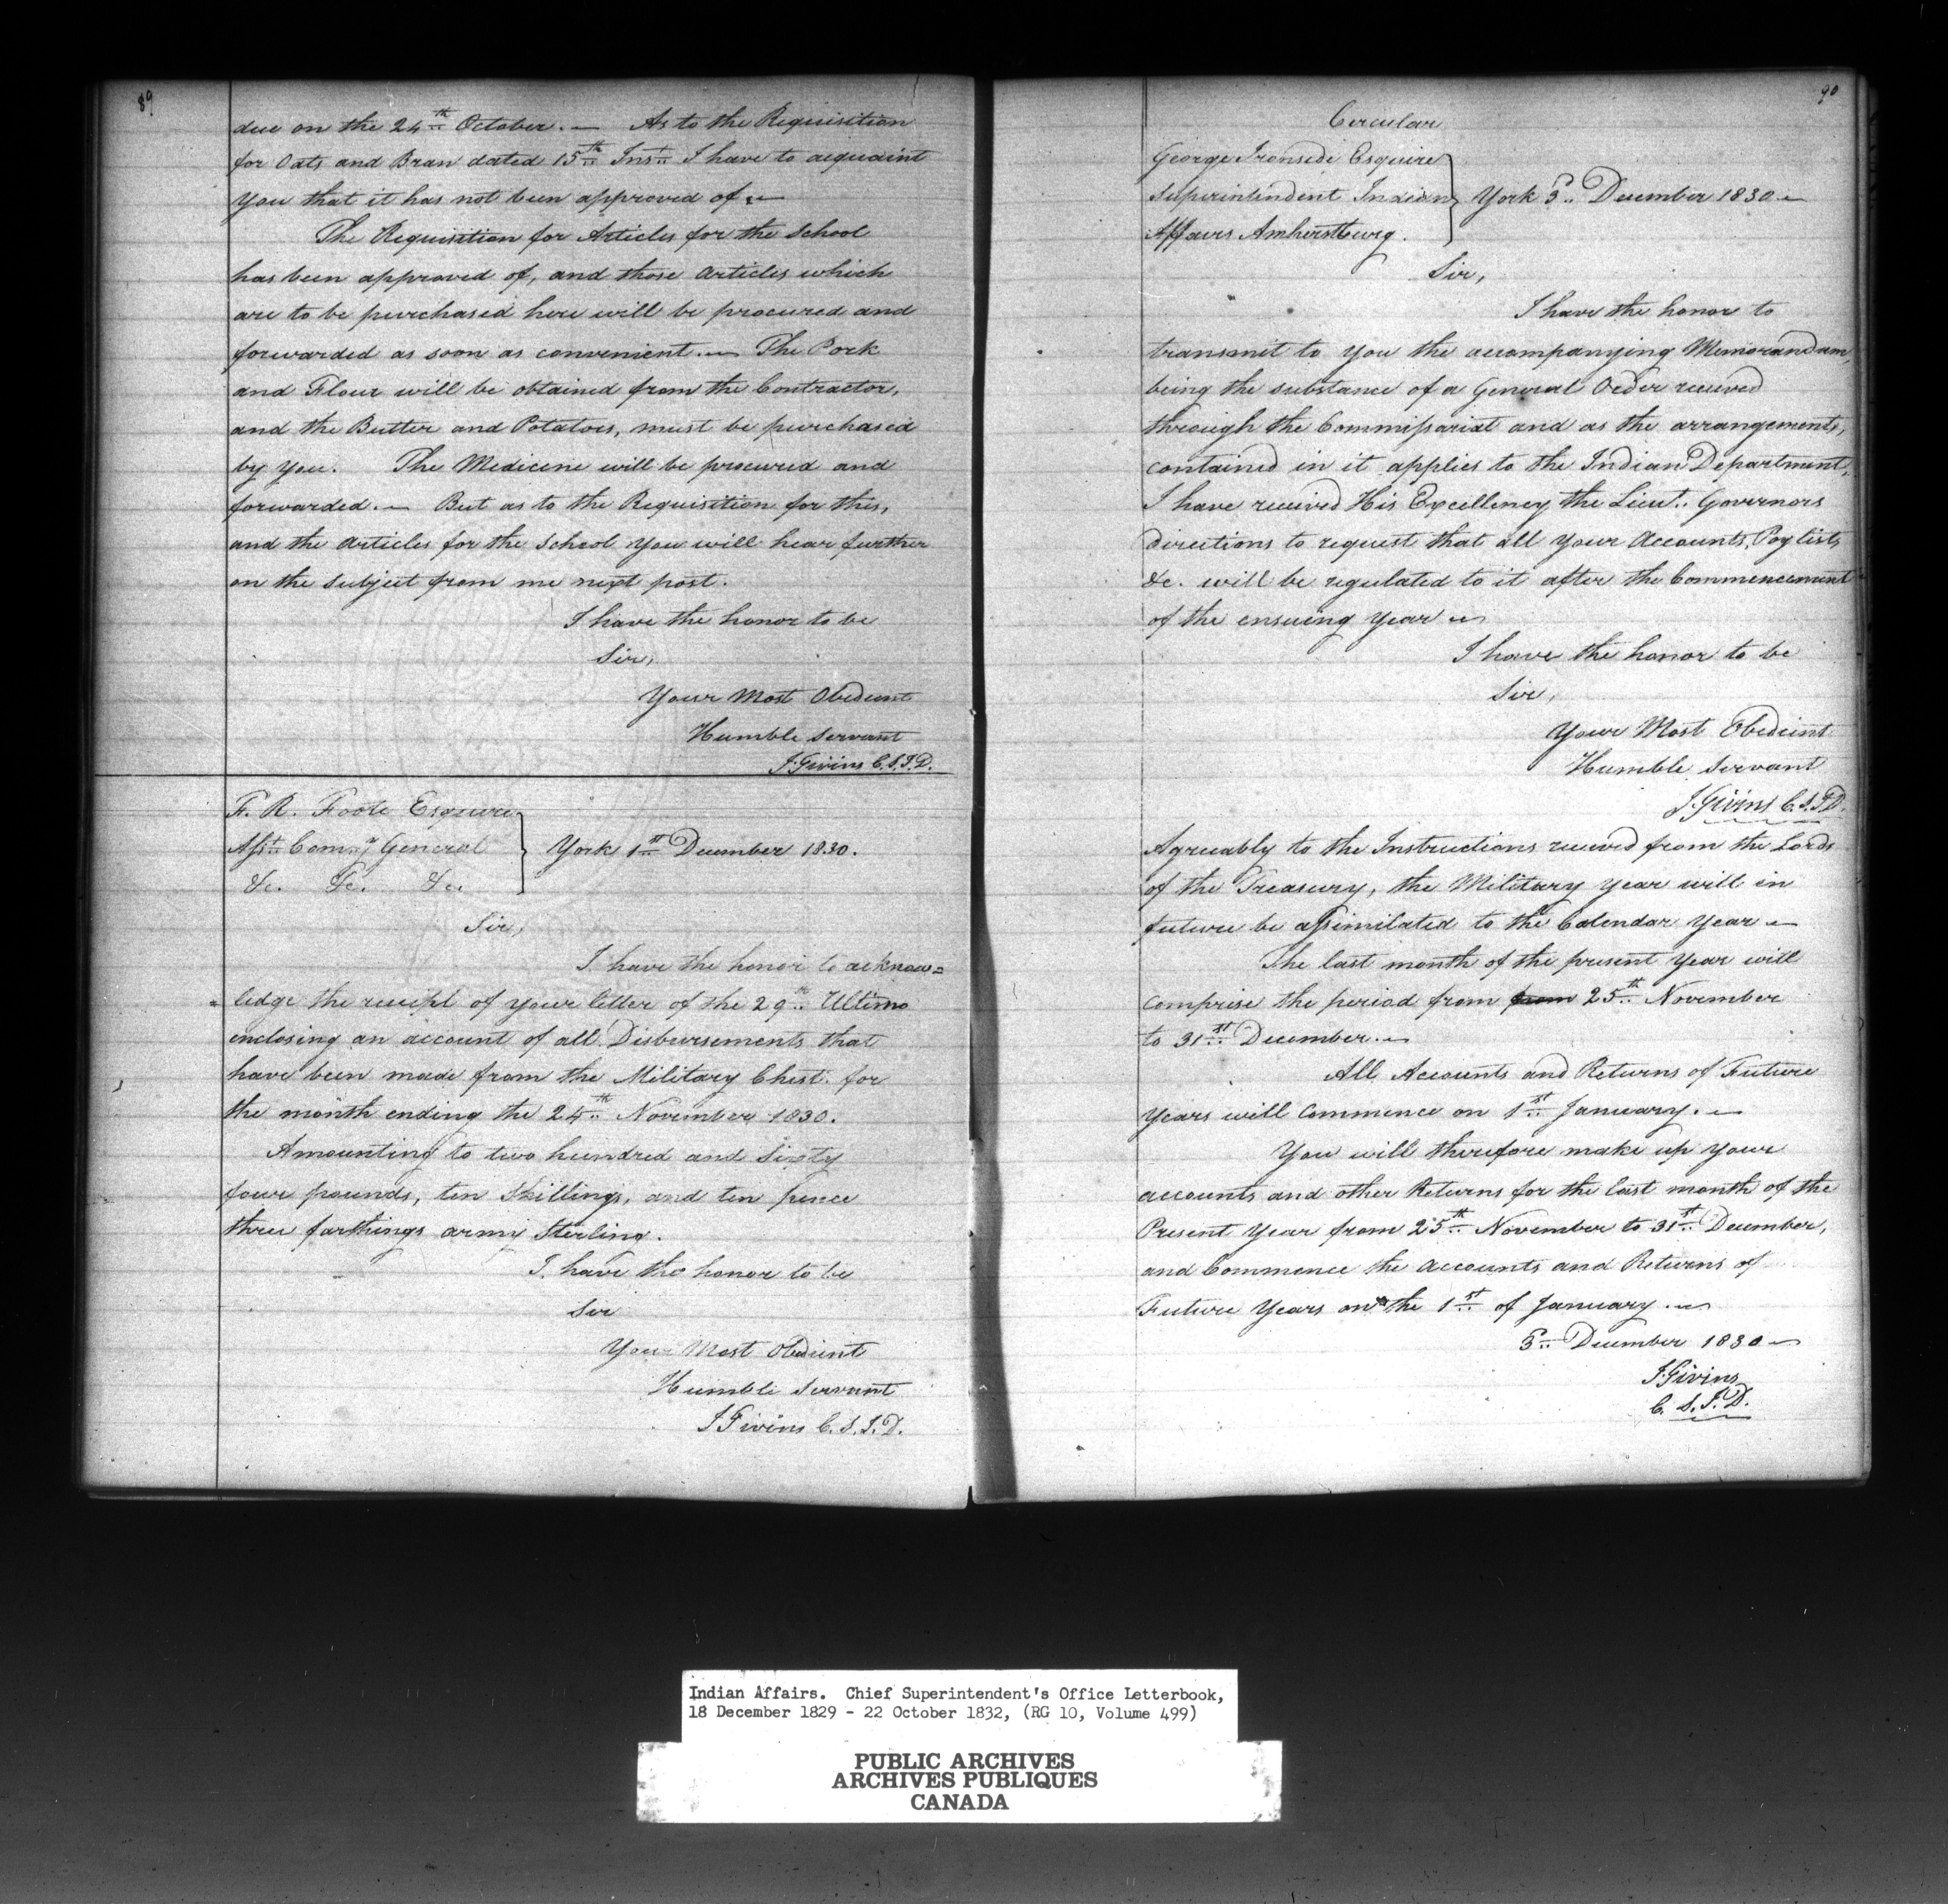 89
due on the 24th October. — As to the Requisition
for Oats and Bran dated 15th Inst. I have to acquaint
you that it has not been approved of. —
The Requisition for Articles for the School
has been approved of, and those Articles which
are to be purchased here will be procured and
forwarded as soon as convenient. — The Pork
and Flour will be obtained from the Contractor,
and the Butter and Potatoes, must be purchased
by you. The Medicine will be procured and
forwarded. — But as to the Requisition for this,
and the Articles for the School you will hear further
on the subject from me next post.
I have the honor to be
Sir,
Your Most Obedient
Humble Servant
J. Givins C.S.I.D.
F. R. Foote Esquire
Asst. Comy. General
&c. &c. &c.
York 1st December 1830.
Sir,
I have the honor to acknow=
=ledge the receipt of your letter of the 29th Ultimo
enclosing an account of all Disbursements that
have been made from the Military Chest for
the month ending the 24th November 1830.
Amounting to two hundred and Sixty
four pounds, ten Shillings, and ten pence
three farthings army Sterling.
I have the honor to be
Sir
Your Most Obedient
Humble Servant
J Givins C.S.I.D.
90
Circular
George Ironside Esquire
Superintendent Indian
Affairs Amherstburg.
York 3d. December 1830 —
Sir,
I have the honor to
transmit to you the accompanying Memorandum,
being the substance of a General Order received
through the Commissariat and as the arrangements,
contained in it applies to the Indian Department,
I have received His Excellency the Lieut. Governors
directions to request that all your Accounts, Paylists
&c. will be regulated to it after the Commencement
of the ensuing Year —
I have the honor to be
Sir,
Your Most Obedient
Humble Servant
J. Givins C.S.I.D.
Agreeably to the Instructions received from the Lords
of the Treasury, the Military Year will in
future be assimilated to the Calendar Year —
The last month of the present Year will
comprise the period from from 25th November
to 31st December. —
All Accounts and Returns of Future
Years will Commence on 1st January. —
You will therefore make up your
accounts and other Returns for the last month of the
Present Year from 25th November to 31st December,
and Commence the Accounts and Returns of
Future Years on the 1st of January. —
3d. December 1830 —
J Givins
C. S. I. D.
Indian Affairs. Chief Superintendent's Office Letterbook,
18 December 1829 - 22 October 1832, (RG 10, Volume 499)
PUBLIC ARCHIVES
ARCHIVES PUBLIQUES
CANADA